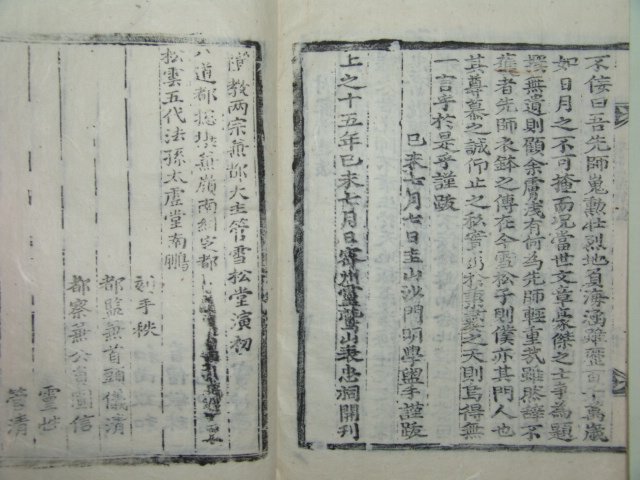 不佞曰吾先師嵬勳壯烈地負海涵雖歷百千萬歲
如日月之不可掩而況當世文章豪傑之士爭為題
揆無遺則顧余膚淺有何為先師輕重哉雖然辭不
獲者先師衣鉢之傳在今雪松子則僕亦其門人也
其尊慕之誠仰止之私實 於秉彝之天則烏得無
一言乎於是乎謹跋
己未七月七日圭山沙門明學盥手謹跋
上之十五年己未七月日密州靈鷲山表忠祠開刊
禪教兩宗兼都大主管雪松堂演初
八道都摠攝兼嶺南糾定都
松雲五代法孫太虛堂南鵬
刻手秩
都監兼首頭儀淸
都察兼公員圓信
雪世
管淸